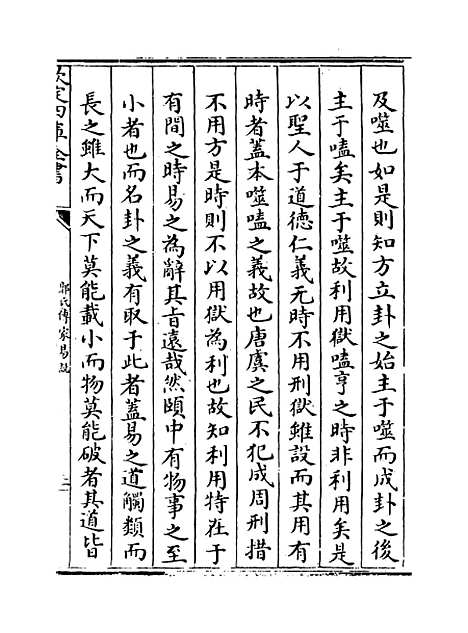 及噬也如是則知方立卦之始主于噬而成卦之後
主于嗑矣主于噬故利用獄嗑亨之時非利用矣是
以聖人于道德仁義无時不用刑獄雖設而其用有
時者蓋本噬嗑之義故也唐虞之民不犯成周刑措
不用方是時則不以用獄為利也故知利用特在于
有間之時易之為辭其㫖遠哉然頤中有物事之至
小者也而名卦之義有取于此者蓋易之道觸類而
長之雖大而天下莫能載小而物莫能破者其道皆
欽定四庫全書
郭氏傳家易說